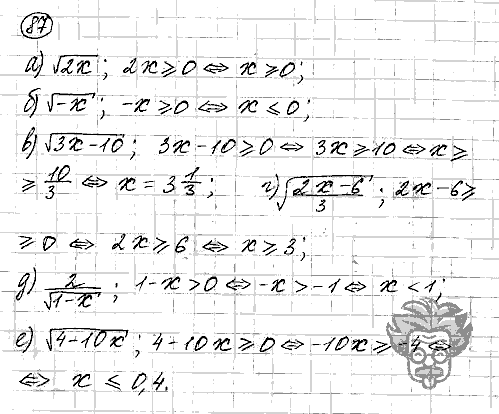 87
а) √2x; 2x ≥ 0 ⇔ x ≥ 0;
б) √-x; -x ≥ 0 ⇔ x ≤ 0;
в) √3x-10; 3x-10 ≥ 0 ⇔ 3x ≥ 10 ⇔ x ≥
≥ 10/3 ⇔ x = 3 1/3; г) √(2x-6)/3; 2x-6 ≥
≥ 0 ⇔ 2x ≥ 6 ⇔ x ≥ 3;
д) 2/√1-x; 1-x > 0 ⇔ -x > -1 ⇔ x < 1;
е) √4-10x; 4-10x ≥ 0 ⇔ -10x ≥ -4 ⇔
⇔ x ≤ 0,4.